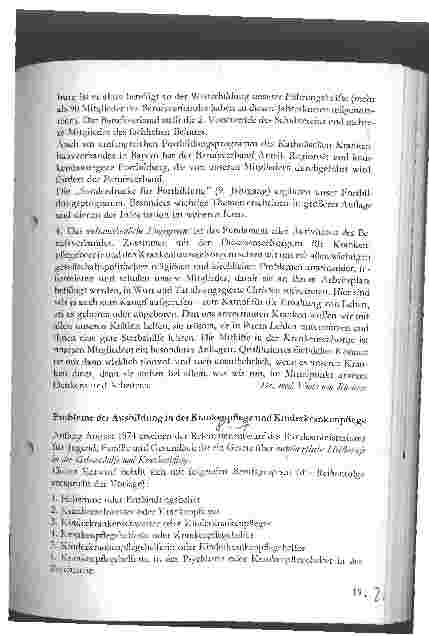 burg ist es aktiv beteiligt an der Weiterbildung unserer Führungskräfte (mehr
als 90 Mitglieder des Berufsverbandes haben an diesen Jahreskursen teilgenom-
men). Der Berufsverband stellt die 2. Vorsitzende des Schulvereins und mehre-
re Mitglieder des fachlichen Beirats.
Auch am umfangreichen Fortbildungsprogramm des Katholischen Kranken-
hausverbandes in Bayern hat der Berufsverband Anteil. Regionale und haus-
Fortbildung, die von unseren Mitgliedern durchgeführt wird
der Berufsverband.
Die „Sonderdrucke für Fortbildung" (9. Jahrgang) ergänzen unser Fortbil-
dungsprogramm. Besonders wichtige Themen erscheinen in größerer Auflage
und dienen der Information im weiteren Kreis.
4. Das ist das Fundament aller Aktivitäten des Be-
rufsverbandes. Zusammen mit den für Kranken-
gesellschaftspolitischen religiösen und kirchlichen Problemen
formieren und schulen unsere Mitglieder, damit sie an ihrem Arbeitsplatz
befähigt werden, in Wort und Tat Hier sind
wir ja auch zum Kampf aufgerufen – zum Kampf für die Erhaltung von Leben,
sei es geboren oder ungeboren. Den uns anvertrauten Kranken wollen wir mit
allen unseren Kräften helfen, sei es, in ihrem Leiden
ihnen eine gute Sterbehilfe leisten. Die Mithilfe in der Krankenseelsorge ist
unseren Mitgliedern ein besonderes Anliegen. Qualifiziertes fachliches Können
ist nur dann wirklich sinnvoll und auch menschlich, wenn es unseren Kran-
ken dient, denn sie stehen bei allem, was wir tun, im Mittelpunkt unseres
Denkens und Arbeitens.
Probleme der Ausbildung in der Krankenpflege und Kinderkrankenpflege
Anfang August 1974 erschien der Referentenentwurf des Bundesministeriums
für Jugend, Familie und Gesundheit für ein Gesetz über nichtärztliche Heilberufe
in der Geburtshilfe und Krankenpflege.
Dieser Entwurf befaßt sich mit folgenden Berufsgruppen (die Reihenfolge
entspricht der Vorlage):
1. Hebamme oder Entbindungshelfer
2. Krankenschwester oder Krankenpfleger
3. Kinderkrankenschwester oder Kinderkrankenpfleger
4. Krankenpflegehelferin oder Krankenpflegehelfer
5. Kinderkrankenpflegehelferin oder Kinderkrankenpflegehelfer
6. Krankenpflegehelferin in der Psychiatrie oder Krankenpflegehelfer in der
Psychiatrie